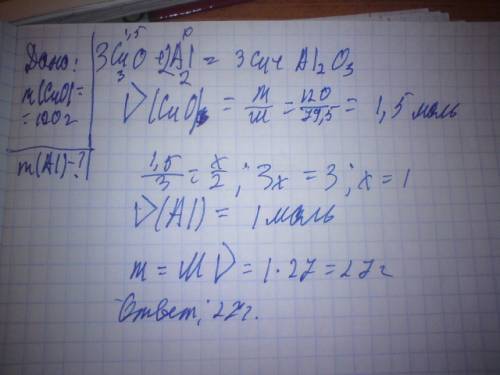 Дано:
m(CuO)=
=120г
m(Al)-?
1,5 x
3CuO + 2Al = 3Cu + Al2O3
3 2
ν(CuO) = m/M = 120/79,5 = 1,5 моль
1,5/3 = x/2 ; 3x = 3 ; x = 1
ν(Al) = 1 моль
m = M ν = 1 · 27 = 27г
Ответ: 27г.